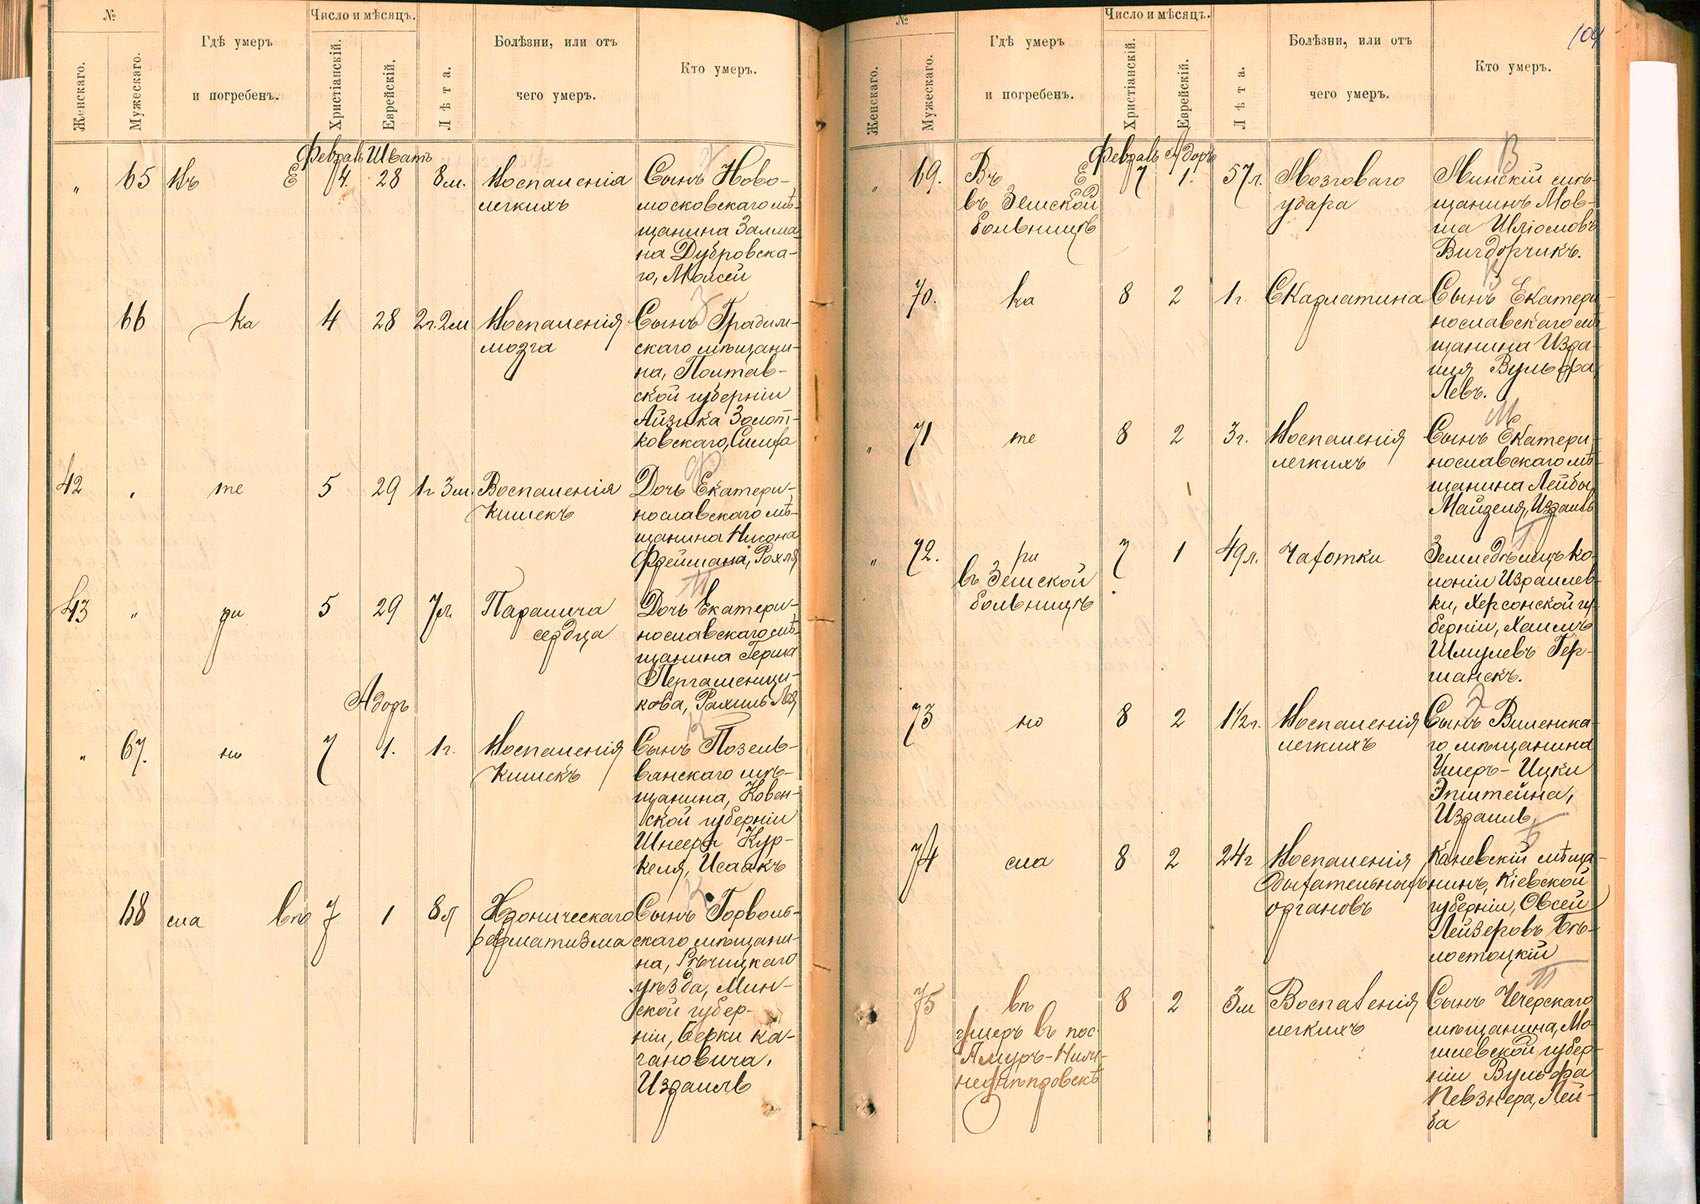 №
Число и мѣсяцъ.
Женскаго.
Мужескаго.
Гдѣ умеръ
и погребенъ.
Христіанскій.
Еврейскій.
Лѣта.
Болѣзни, или отъ
чего умеръ.
Кто умеръ.
Февраль Шватъ
„ 65 Въ Е 4. 28 8 м. Воспаленія
легкихъ
Сынъ Ново-
московскаго мѣ-
щанина Залма-
на Дубровска-
го, Моисей
66 ка 4 28 2г. 2м Воспаленія
мозга
Сынъ
скаго мѣщани-
на, Полтав-
ской губерніи
Айзика Золот-
ковскаго,
42 „ те 5 29 1г 3м. Воспаленія
кишекъ
Дочь Екатери-
нославскаго мѣ-
щанина Нисона
Фреймана, Рохля
43 „ ри 5 29 7л. Паралича
сердца
Дочь Екатери-
нославскаго мѣ-
щанина Герша
Пергаменщи-
кова, Рахиль Лея
Адоръ
„ 67. но 7 1. 1г. Воспаленія
кишекъ
Сынъ Позель-
ванскаго мѣ-
щанина, Ковен-
ской губерніи
Шнеера Кур-
келя, Исаакъ
68 сла впо 7 1 8л Хроническаго
ревматизма
Сынъ Горволь-
скаго мѣщани-
на, Рѣчицкаго
уѣзда, Мин-
ской губер-
ніи, Берки Ка-
гановича,
Израиль
104
№
Число и мѣсяцъ.
Женскаго.
Мужескаго.
Гдѣ умеръ
и погребенъ.
Христіанскій.
Еврейскій.
Лѣта.
Болѣзни, или отъ
чего умеръ.
Кто умеръ.
Февраль Адоръ
„ 69. Въ Е 7 1. 57л. Мозговаго
удара
въ Земской
больницѣ
Минскій мѣ-
щанинъ Мов-
ша Шліомовъ
Вигдорчикъ.
70. ка 8 2 1г. Скарлатина
Сынъ Екатери-
нославскаго мѣ-
щанина Изра-
иля Вульфа
Левъ.
„ 71 те 8 2 3г. Воспаленія
легкихъ
Сынъ Екатери-
нославскаго мѣ-
щанина Лейбы
Майзеля, Израиль
„ 72. ри 7 1 49л. Чахотки
въ Земской
больницѣ
Земледѣлецъ ко-
лоніи Израилев-
ки, Херсонской гу-
берніи, Хаимъ
Шмулевъ Гер-
манскъ.
73 но 8 2 1 1/2г. Воспаленія
легкихъ
Сынъ Виленска-
го мѣщанина
Умеръ-Ицки
Эпштейна,
Израиль
74 сла 8 2 24г Воспаленія
дыхательныхъ
органовъ
Каневскій мѣща-
нинъ, Кіевской
губерніи, Овсей
Лейзеровъ Бѣ-
лостоцкій
75 впо 8 2 3м Воспаленія
легкихъ
умеръ въ пос.
Амуръ-Нижне-
днѣпровскѣ
Сынъ Чечерскаго
мѣщанина, Мо-
гилевской губер-
ніи Вульфа
Певзнера, Лей-
ба